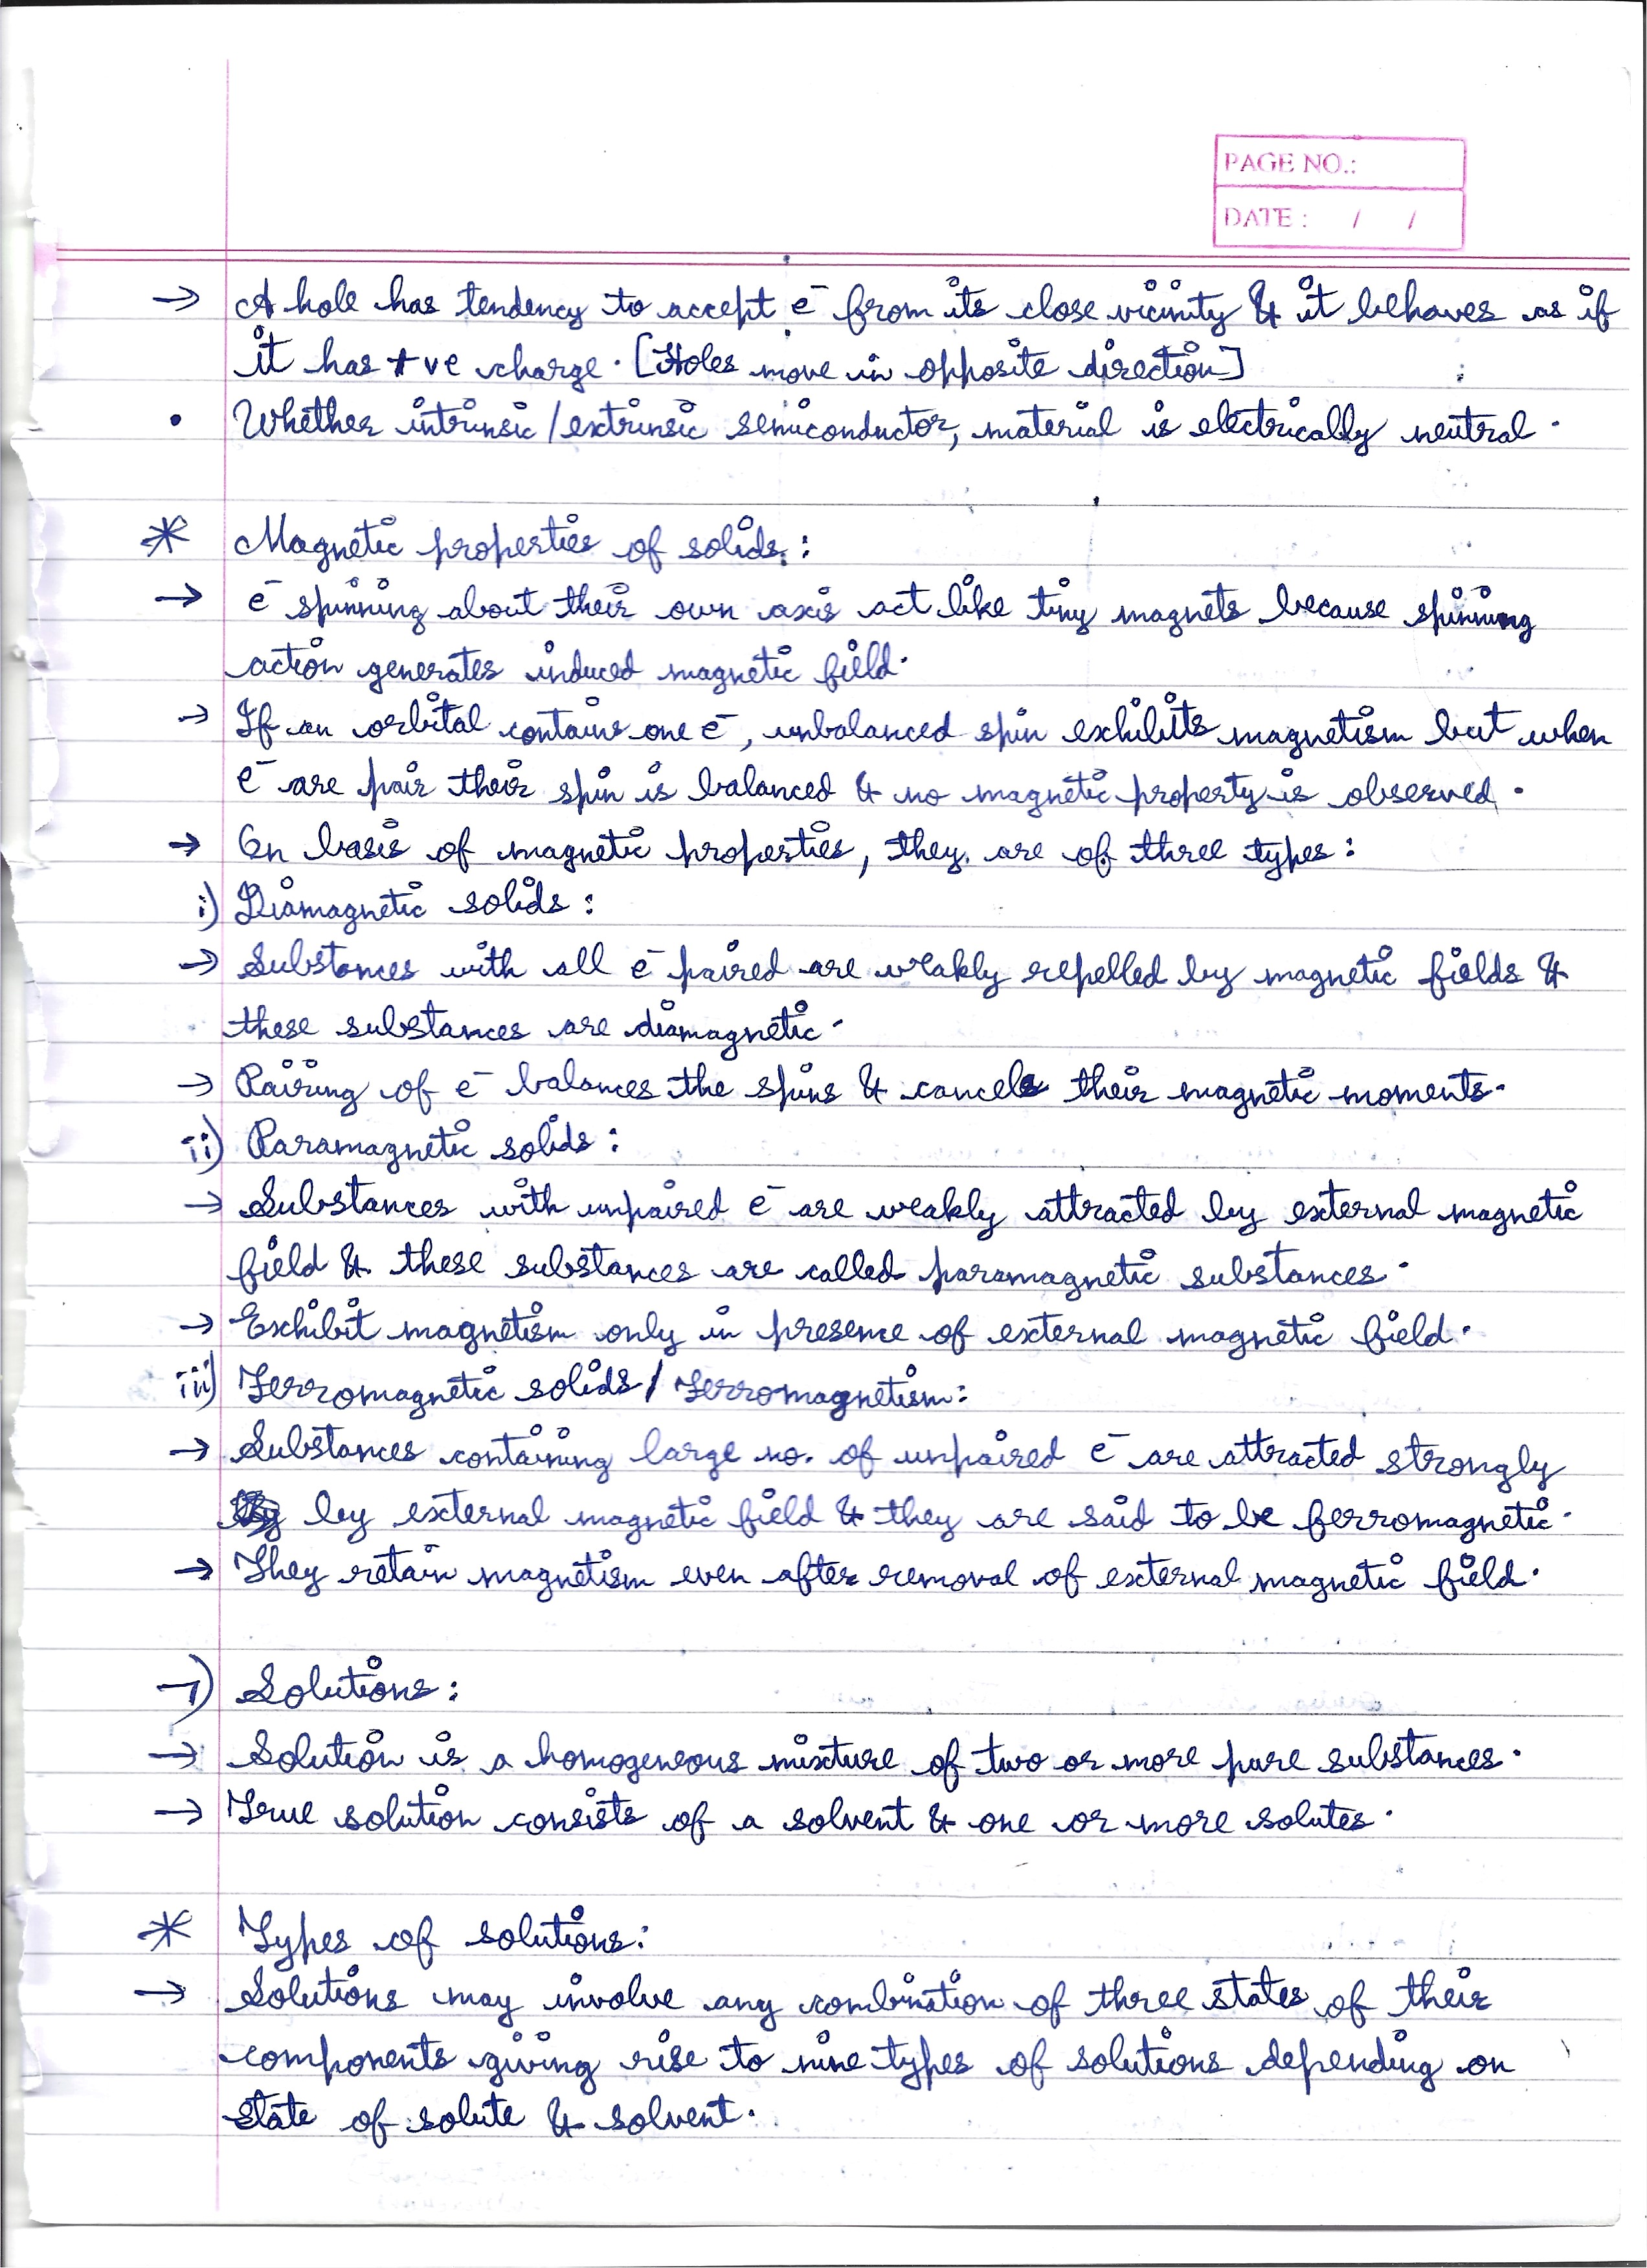 PAGE NO.:
DATE : / /
→ A hole has tendency to accept e⁻ from its close vicinity & it behaves as if
it has +ve charge. [Holes move in opposite direction]
• Whether intrinsic/extrinsic semiconductor, material is electrically neutral.
* Magnetic properties of solids:
→ e⁻ spinning about their own axis act like tiny magnets because spinning
action generates induced magnetic field.
→ If an orbital contains one e⁻, unbalanced spin exhibits magnetism but when
e⁻ are pair their spin is balanced & no magnetic property is observed.
→ On basis of magnetic properties, they are of three types:
i) Diamagnetic solids:
→ Substances with all e⁻ paired are weakly repelled by magnetic fields &
these substances are diamagnetic.
→ Pairing of e⁻ balances the spins & cancels their magnetic moments.
ii) Paramagnetic solids:
→ Substances with unpaired e⁻ are weakly attracted by external magnetic
field & these substances are called paramagnetic substances.
→ Exhibit magnetism only in presence of external magnetic field.
iii) Ferromagnetic solids/Ferromagnetism:
→ Substances containing large no. of unpaired e⁻ are attracted strongly
by external magnetic field & they are said to be ferromagnetic.
→ They retain magnetism even after removal of external magnetic field.
7) Solutions:
→ Solution is a homogeneous mixture of two or more pure substances.
→ True solution consists of a solvent & one or more solutes.
* Types of solutions:
→ Solutions may involve any combination of three states of their
components giving rise to nine types of solutions depending on
state of solute & solvent.